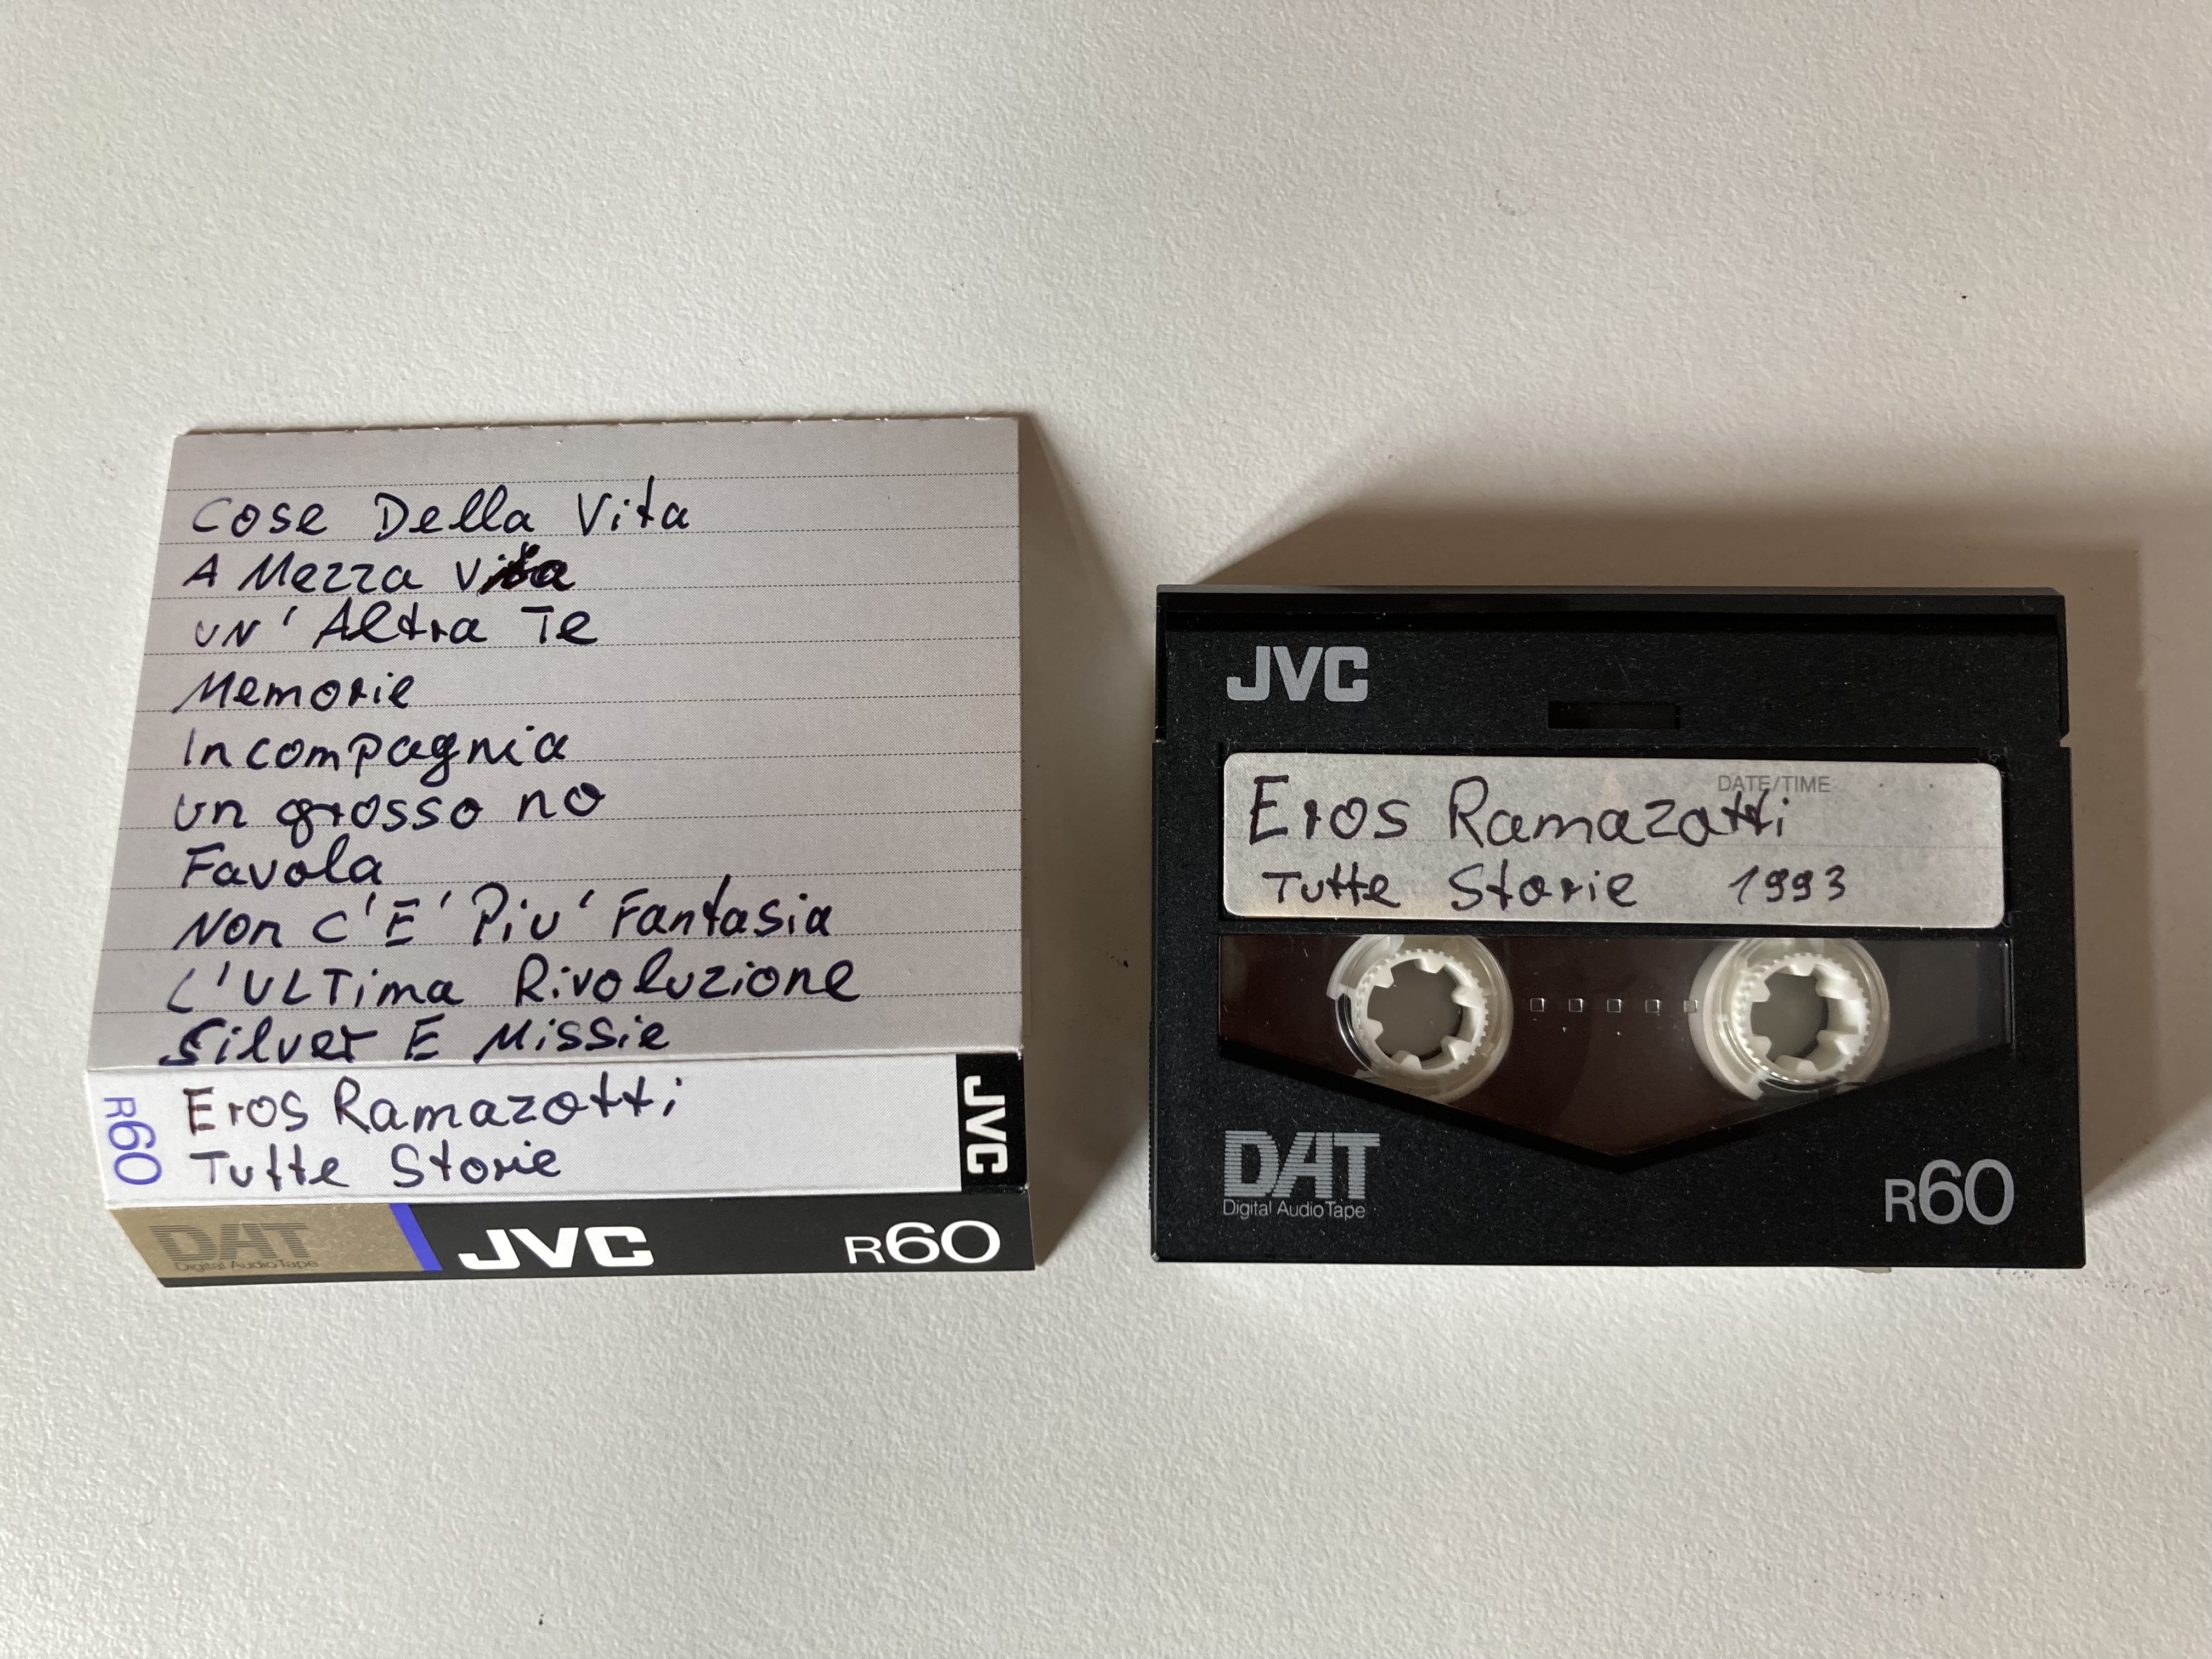 Cose Della Vita
A Mezza Via
Un' Altra Te
Memorie
In compagnia
un grosso no
Favola
Non C' E' Piu' Fantasia
L'ULTima Rivoluzione
Silver E Missie
R60
Eros Ramazotti
Tutte Storie
JVC
DAT
Digital Audio Tape
JVC
R60
JVC
DATE/TIME
Eros Ramazotti
Tutte Storie 1993
DAT
Digital Audio Tape
R60